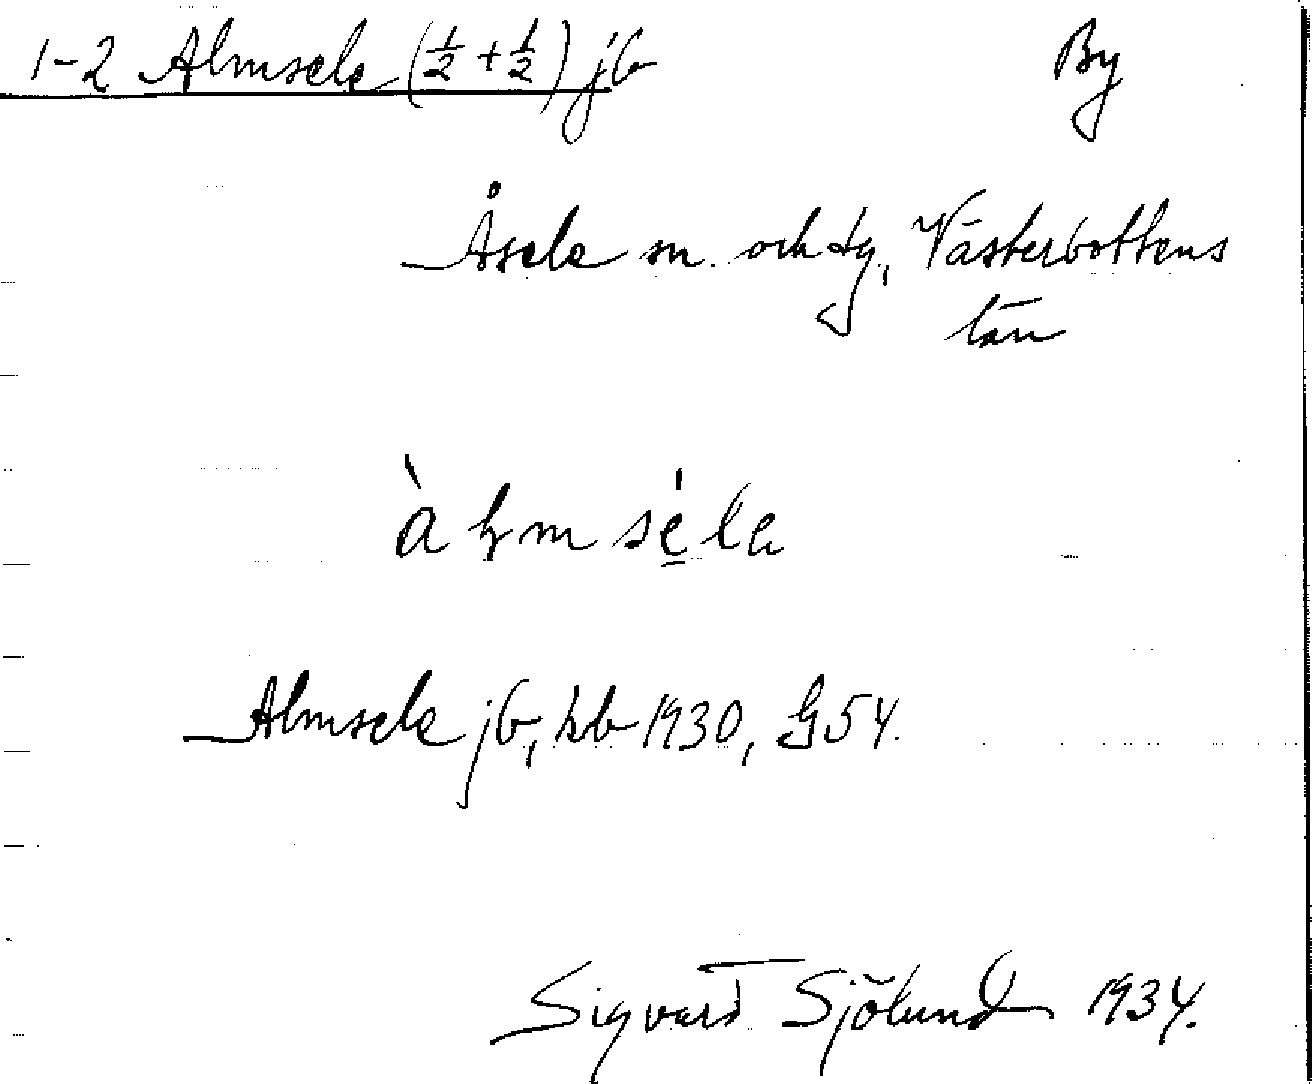 1-2 Almsele (½ + ½) jb By
Åsele sn. och tg, Västerbottens
län
Almsele jb, hb 1930, G54.
Sigvard Sjölund 1934.